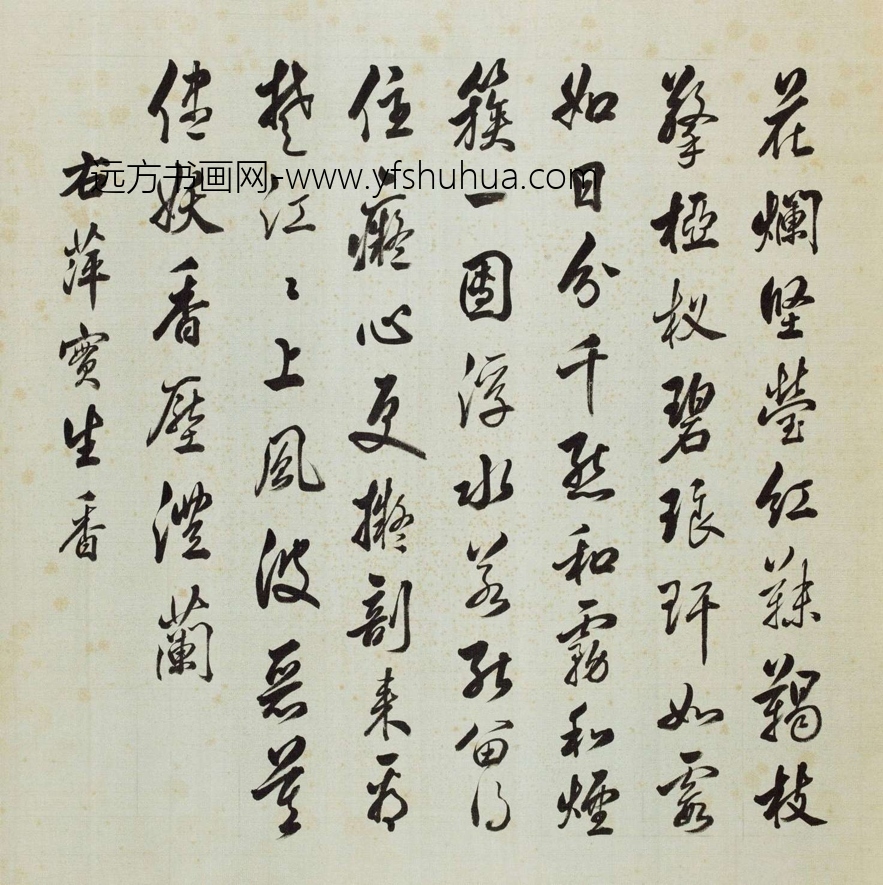 花爛堅瑩紅靺鞨枝
擎椏杈碧琅玕如霞
如日分千點和霧和煙
簇一團浮水若能留得
住癡心更擬剖來看
楚江〻上風波惡莫
使妖香壓澧蘭
右萍實生香
远方书画网-www.yfshuhua.com